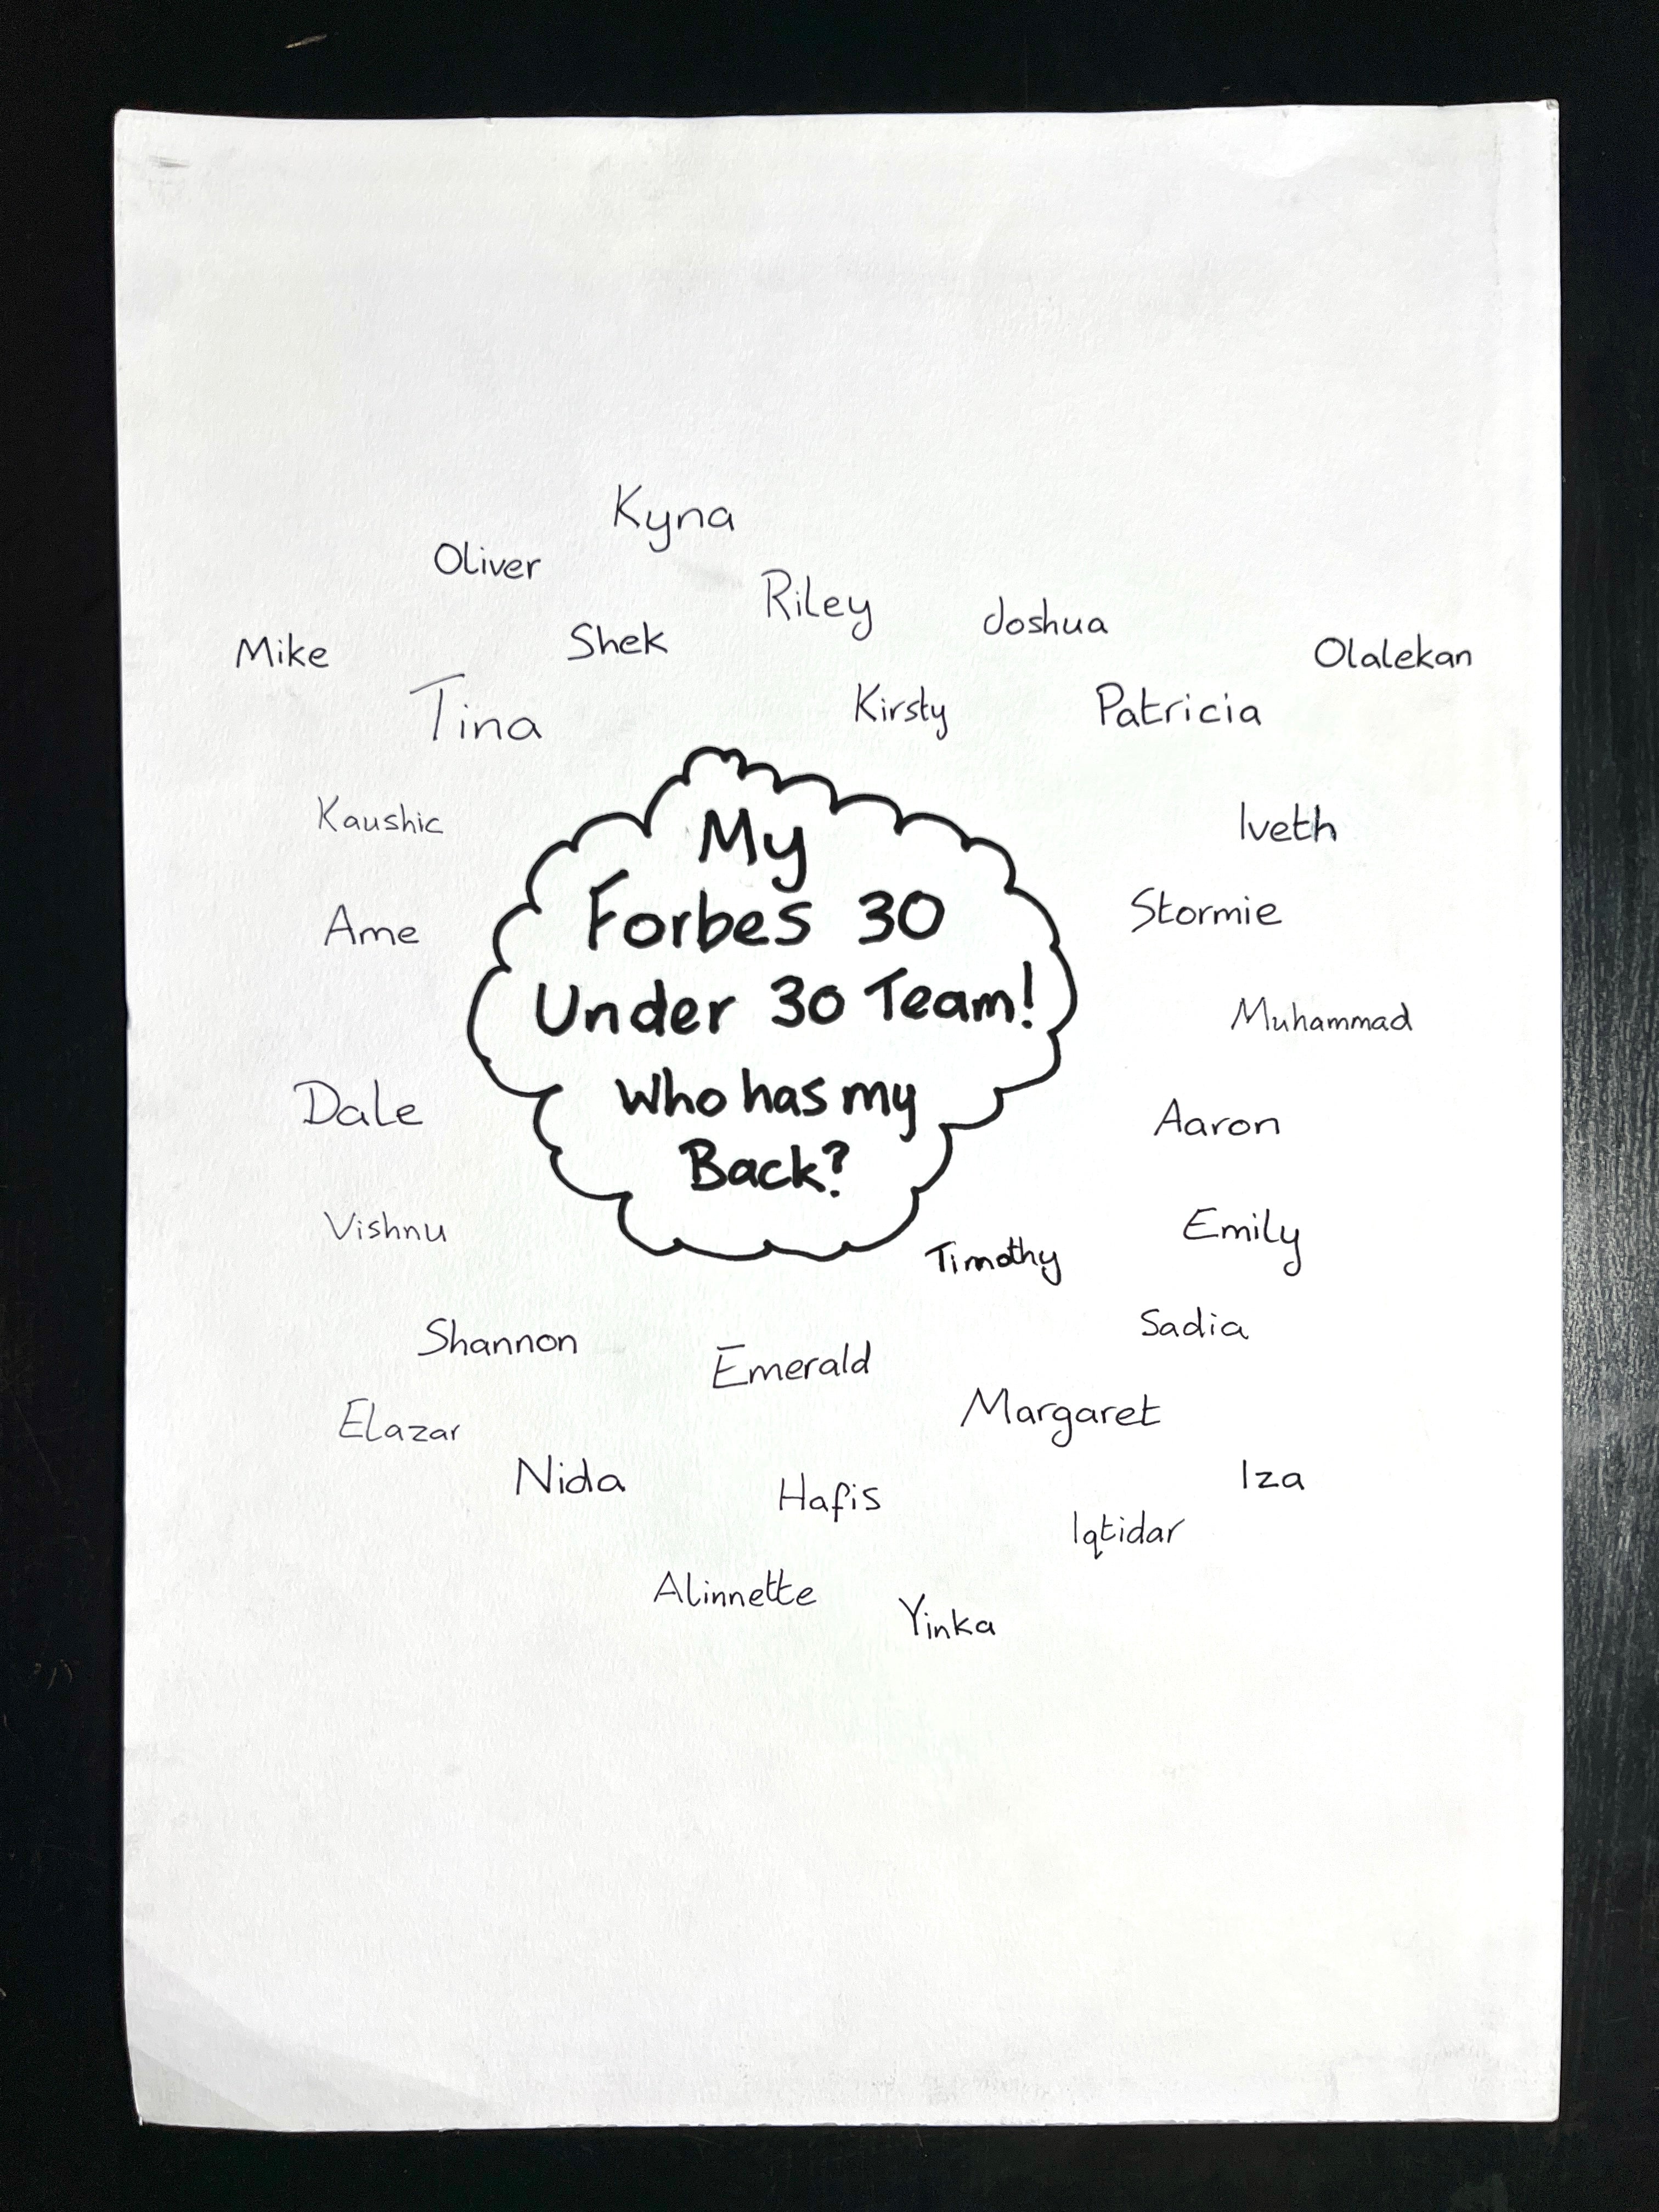 Kyna
Oliver
Riley
Joshua
Shek
Mike
Olalekan
Tina
Kirsty
Patricia
Kaushic
Iveth
My
Forbes 30
Under 30 Team!
Who has my
Back?
Ame
Stormie
Muhammad
Dale
Aaron
Vishnu
Emily
Timothy
Sadia
Shannon
Emerald
Margaret
Elazar
Nida
Hafis
Iza
Iqtidar
Alinnette
Yinka